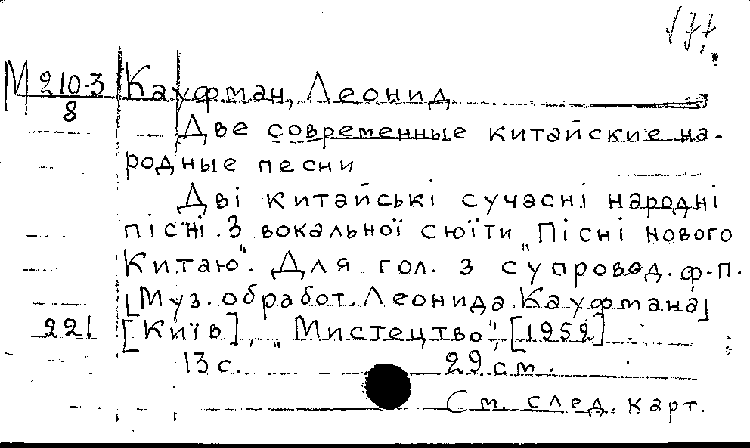 М 210-3 Кауфман, Леонид
8
Две современные китайские на-
родные песни
Дві китайські сучасні народні
пісні. З вокальної сюїти „Пісні нового
Китаю". Для гол. з супровод. ф-п.
[Муз. обработ. Леонида Кауфмана]
221 [Київ], „Мистецтво", [1952]
13 с. 29 см.
См. след. карт.